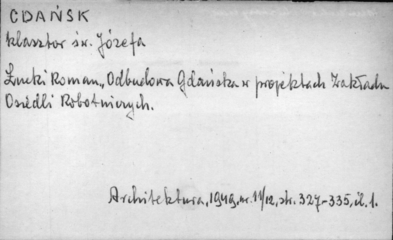 GDAŃSK
klasztor św. Józefa
Łucki Roman, Odbudowa Gdańska w projektach Zakładu
Osiedli Robotniczych.
Architektura, 1949, nr. 11/12, str. 327-335, il. 1.